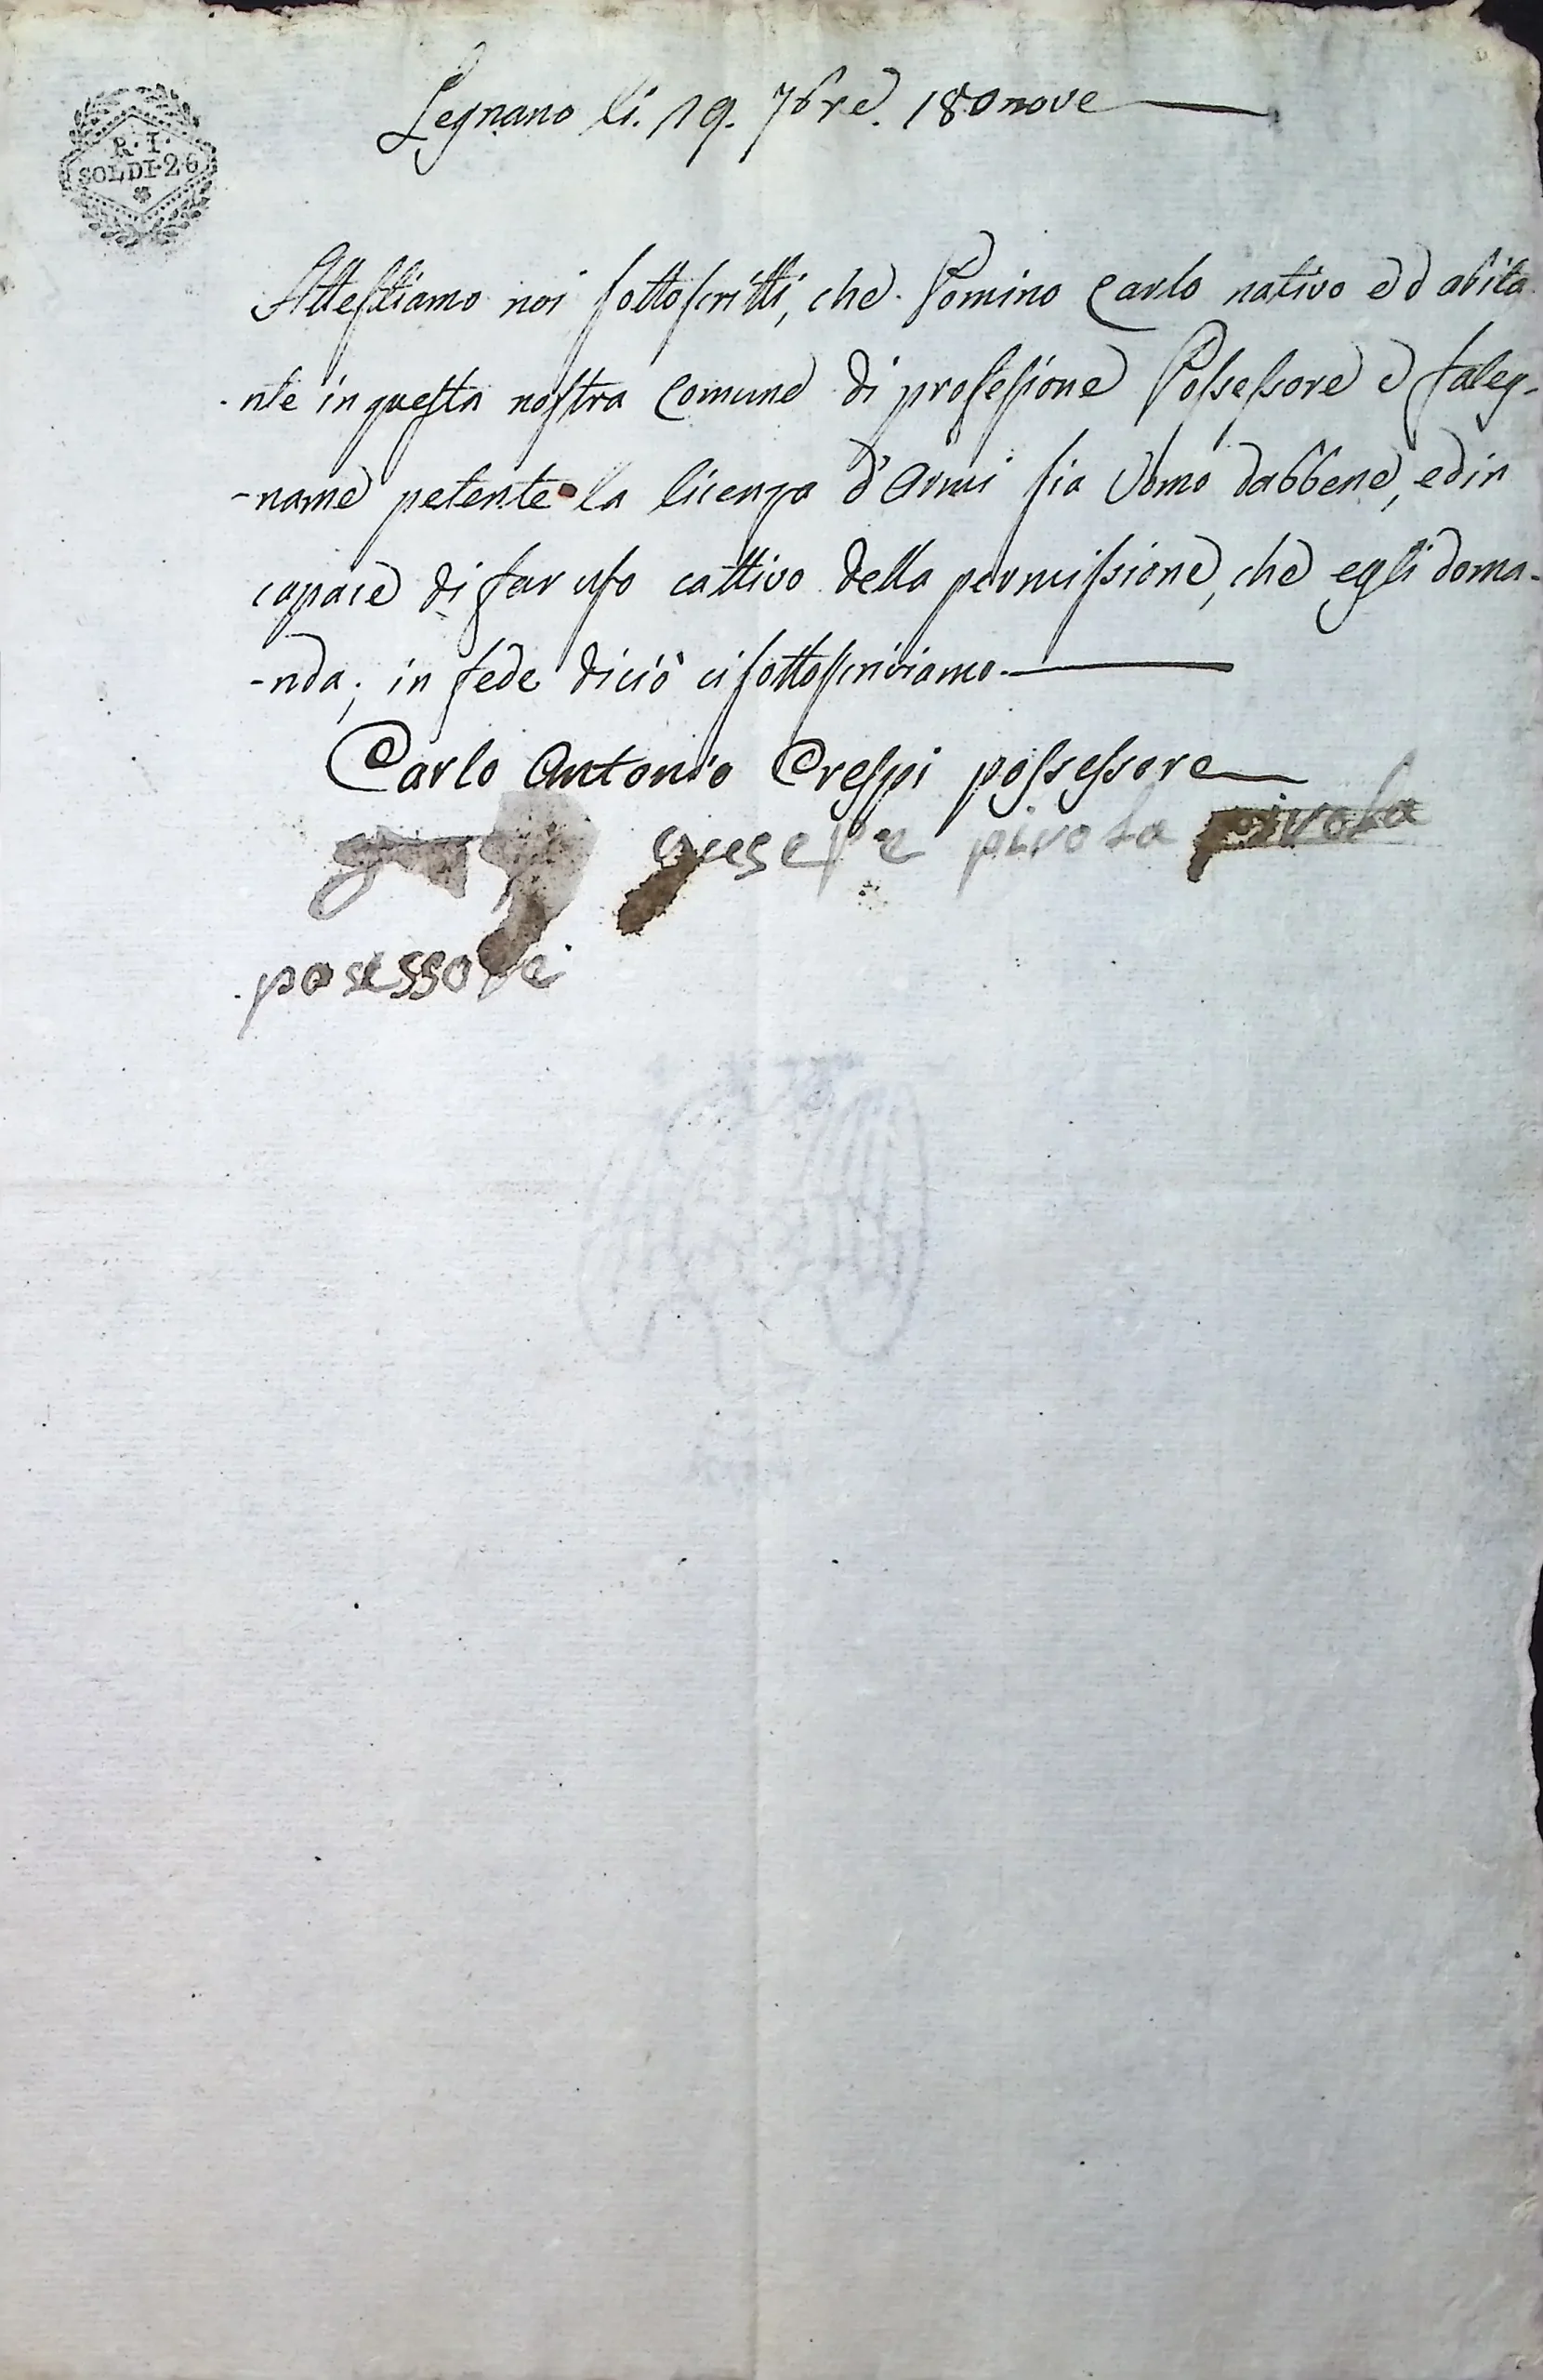 R. I.
SOLDI. 26
Legnano li. 19. 7bre. 180nove
Attestiamo noi sottoscritti, che. Pomino Carlo nativo ed abita-
-nte in questa nostra Comune di professione Possessore e faleg-
-name petente la licenza d'Armi sia Uomo dabbene, ed in
capace di far uso cattivo della permissione, che egli doma-
-nda; in fede di ciò ci sottoscriviamo.
Carlo Antonio Crespi possessore
pirota pirota
posessore